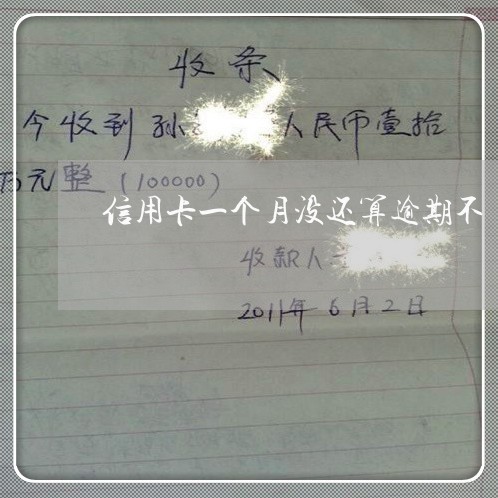 收条
今收到孙 人民币壹拾
万元整(100000)
信用卡一个月没还算逾期不
收款人
2011年6月2日